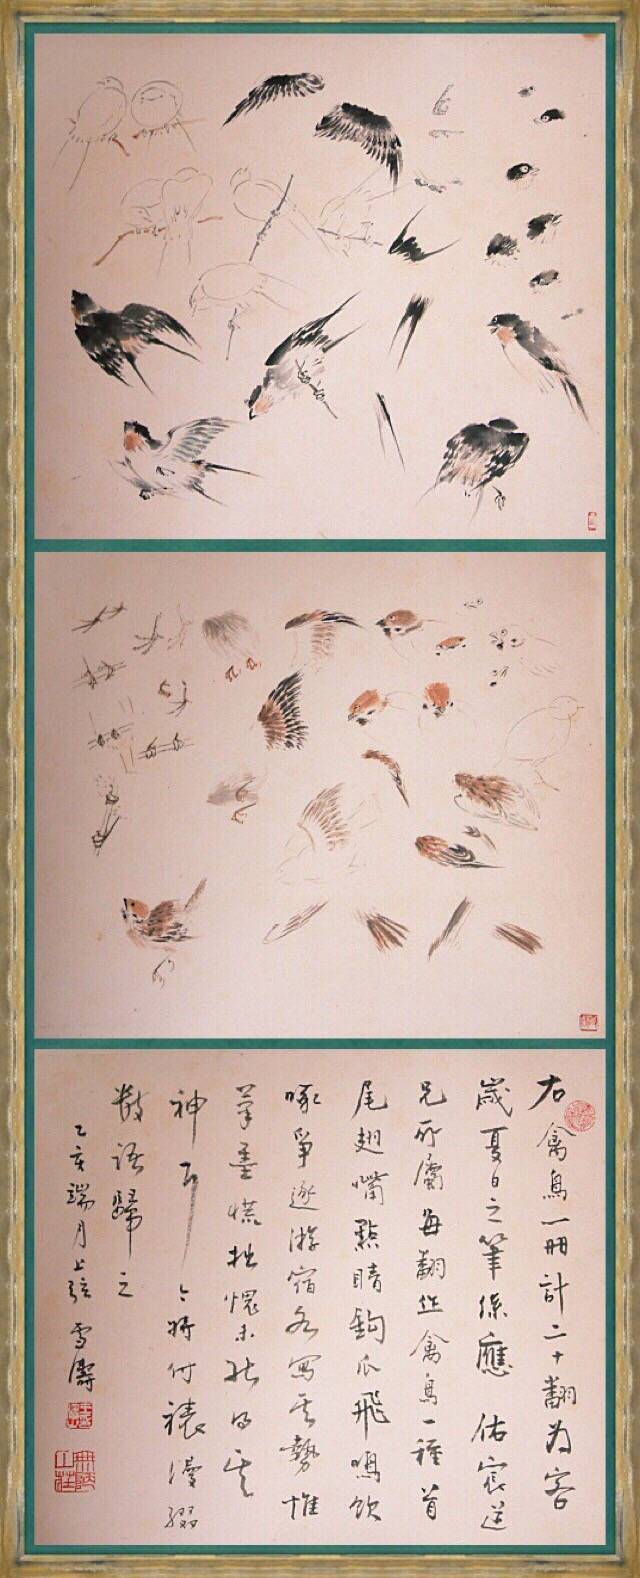 右禽鳥一冊計二十翻為客
歲夏日之筆係應佑宸道
兄所屬每翻作禽鳥一種首
尾翅嘴點睛鉤爪飛鳴飲
啄爭逐游宿各寫其勢惟
筆墨慌拙愧未能得其
神耳今將付裱漫綴
數語歸之
乙亥端月上弦雪濤